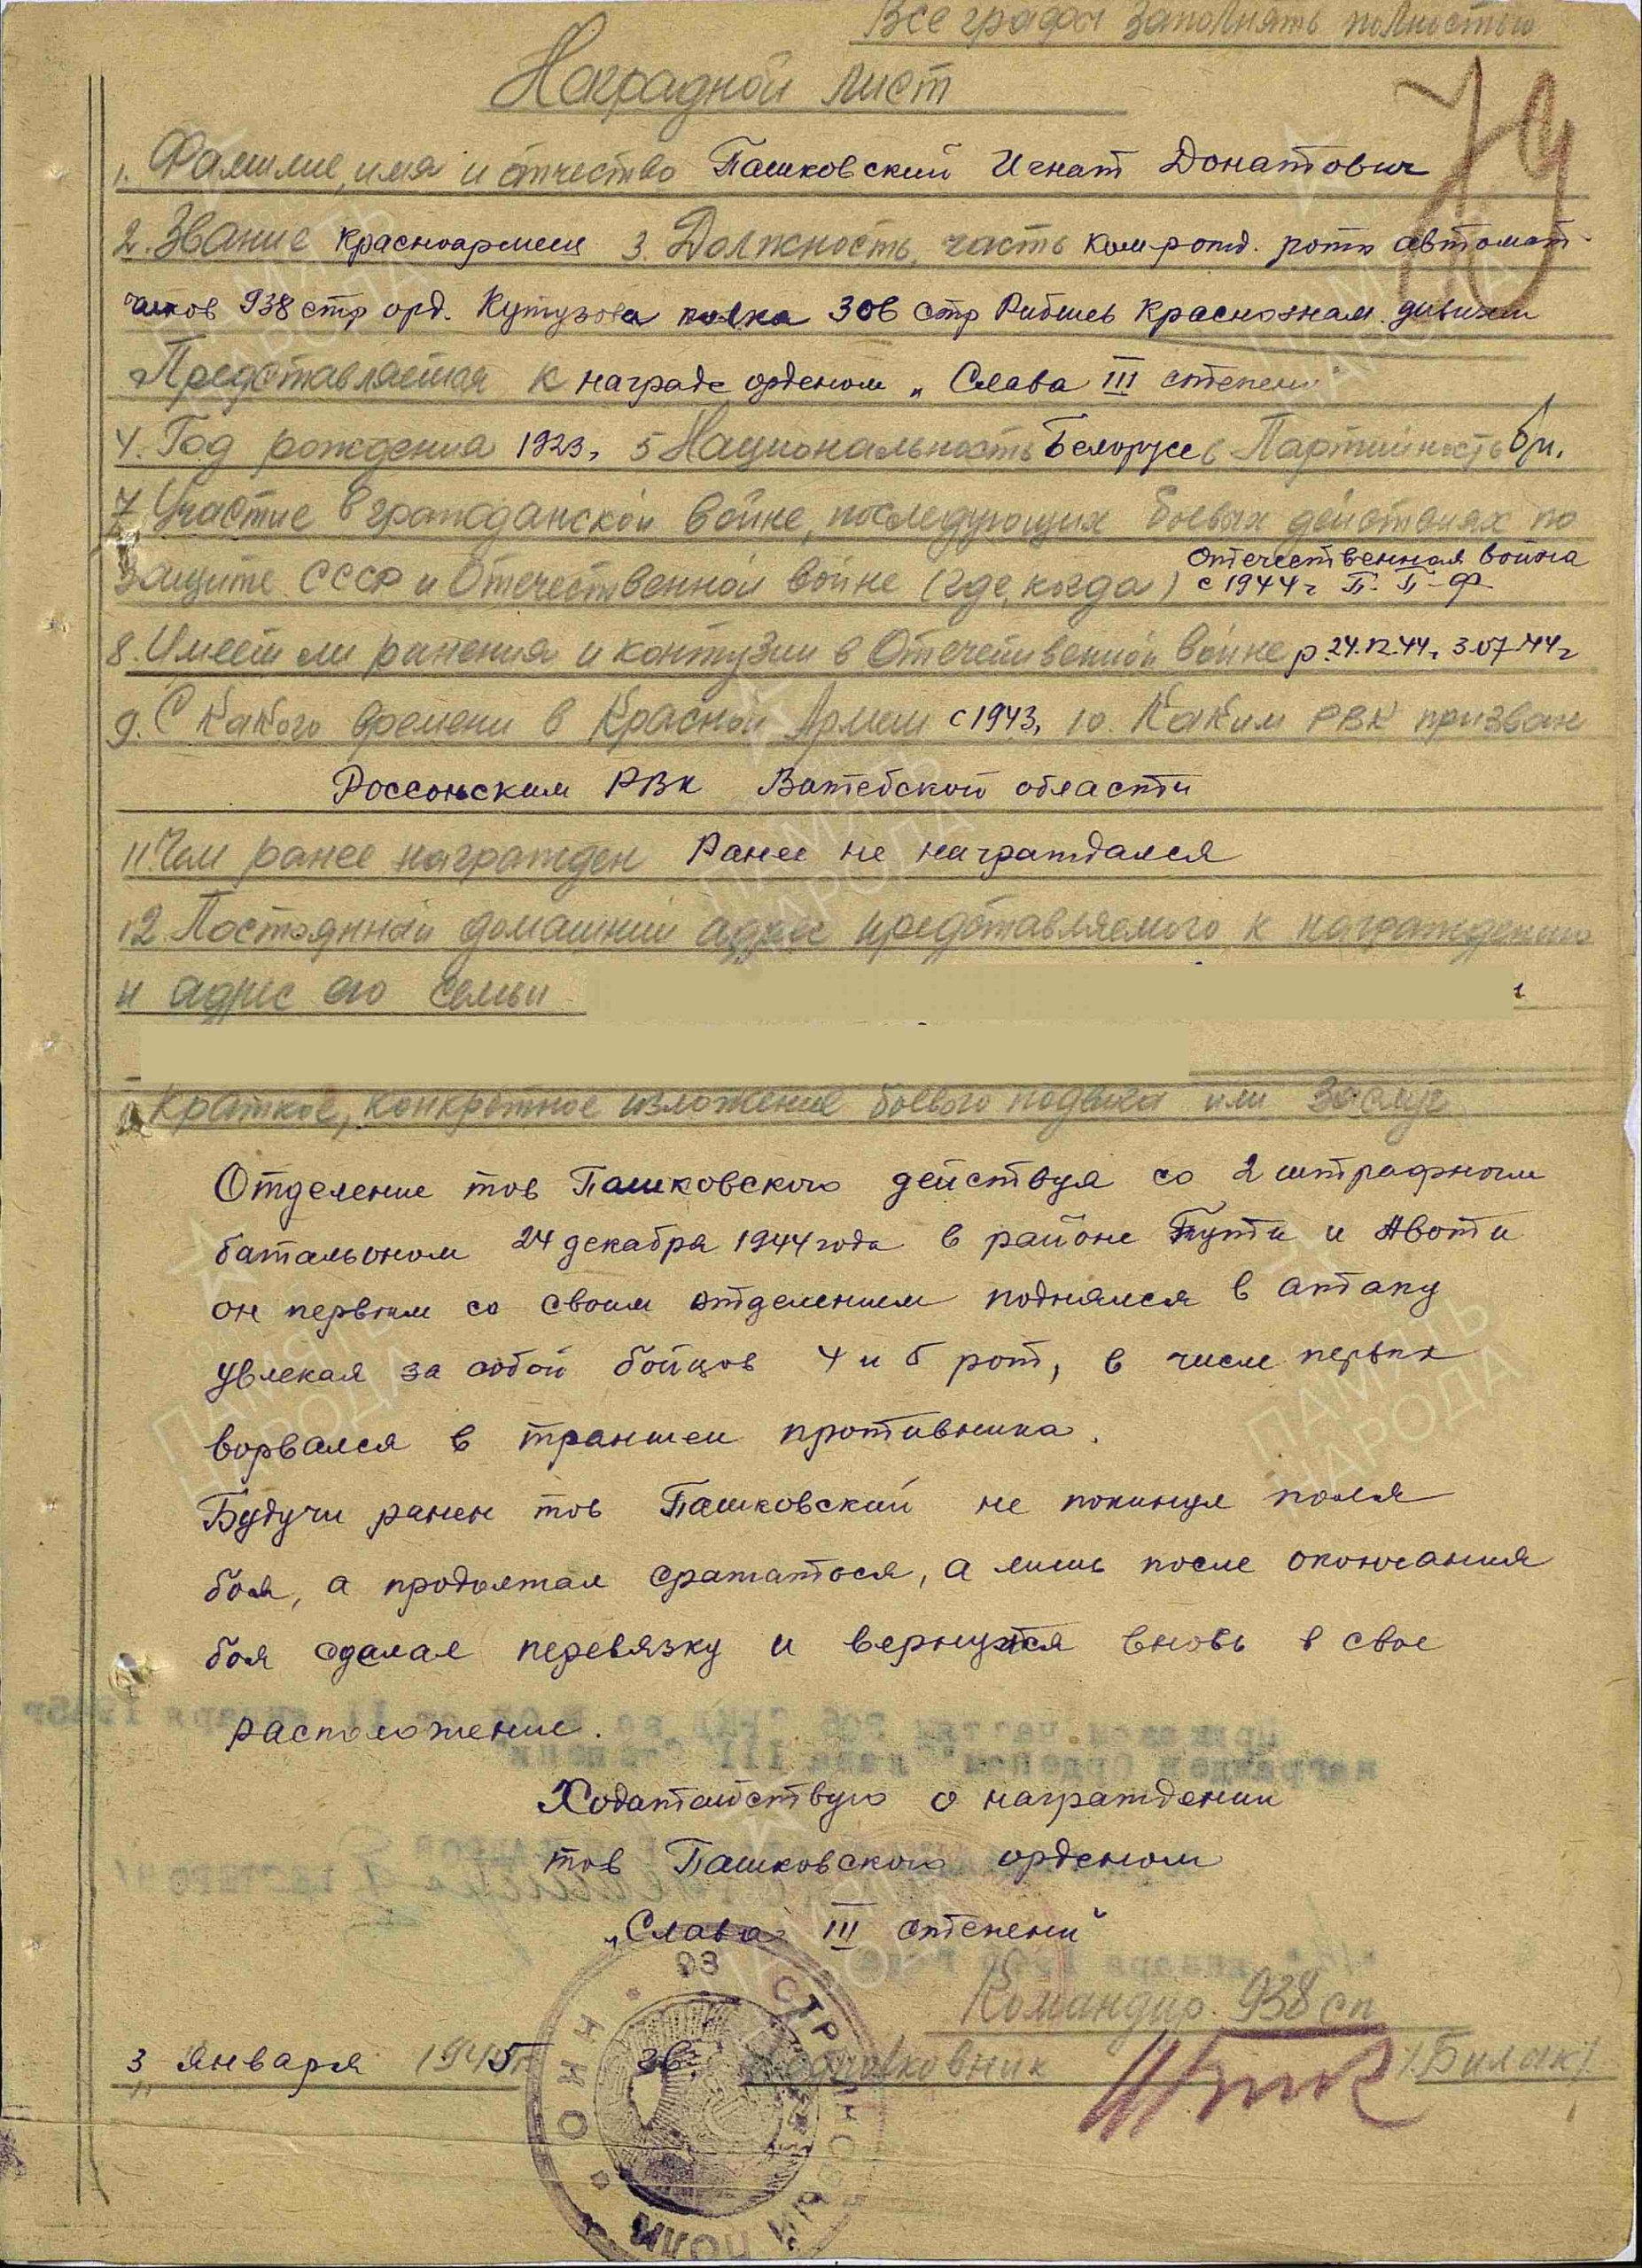 Все графы заполнять полностью
Наградной лист
79
1. Фамилие, имя и отчество Пашковский Игнат Донатович
2. Звание красноармеец 3. Должность, часть ком. отд. роты автомат-
чиков 938 стр орд. Кутузова полка 306 стр Рибшев Краснознам. дивизии
Представляется к награде орденом „Слава III степени"
4. Год рождения 1923г 5 Национальность Белорус 6 Партийность б/п.
7. Участие в гражданской войне, последующих боевых действиях по
защите СССР и Отечественной войне (где, когда) Отечественная война
с 1944г П. П-Ф
8. Имеет ли ранения и контузии в Отечественной войне р. 24.12.44г 3.07.44г
9. С какого времени в Красной Армии с 1943г 10. Каким РВК призван
Россонским РВК Витебской области
11. Чем ранее награжден Ранее не награждался
12. Постоянный домашний адрес представляемого к награждению
и адрес его семьи
Краткое, конкретное изложение боевого подвига или заслуг
Отделение тов Пашковского действуя со 2 штрафным
батальоном 24 декабря 1944 года в районе Пути и Авоти
он первым со своим отделением поднялся в атаку
увлекая за собой бойцов 4 и 5 рот, в числе первых
ворвался в траншеи противника.
Будучи ранен тов Пашковский не покинул поля
боя, а продолжал сражаться, а лишь после окончания
боя сделал перевязку и вернулся вновь в свое
расположение.
Ходатайствую о награждении
тов Пашковского орденом
„Слава III степени"
Командир 938 сп
3 января 1945г Подполковник /Билак/
ПАМЯТЬ НАРОДА